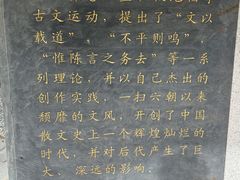 古文运动，提出了“文以
载道”、“不平则鸣”
“惟陈言之务去”等一系
列理论，并以自己杰出的
创作实践，一扫六朝以来
颓靡的文风，开创了中国
散文史上一个辉煌灿烂的
时代，并对后代产生了巨
大、深远的影响。